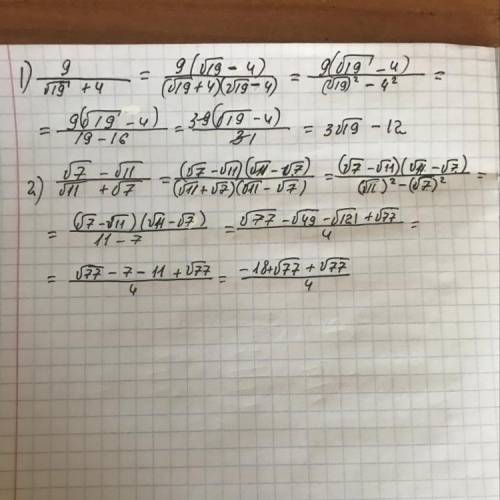 1) 9/(√19 + 4) = 9(√19 - 4)/((√19 + 4)(√19 - 4)) = 9(√19 - 4)/((√19)² - 4²) =
= 9(√19 - 4)/(19 - 16) = 3 9(√19 - 4)/(3 1) = 3√19 - 12
2) (√7 - √11)/(√11 + √7) = (√7 - √11)(√11 - √7)/((√11 + √7)(√11 - √7)) = (√7 - √11)(√11 - √7)/((√11)² - (√7)²) =
= (√7 - √11)(√11 - √7)/(11 - 7) = (√77 - √49 - √121 + √77)/4 =
= (√77 - 7 - 11 + √77)/4 = (-18 + √77 + √77)/4